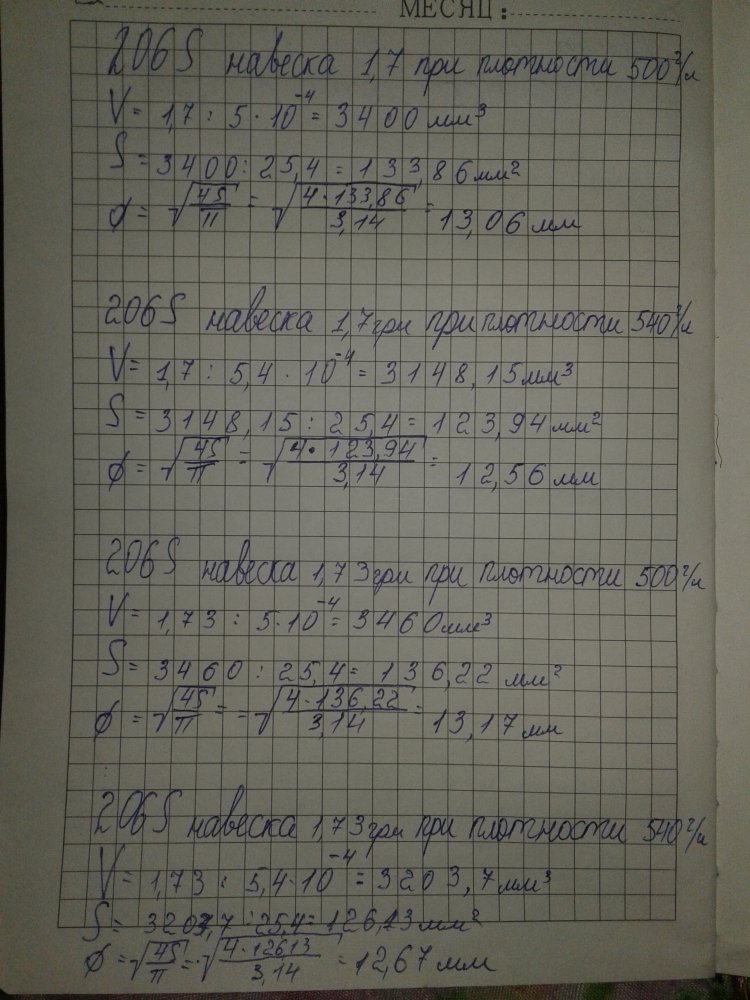 МЕСЯЦ:
206S навеска 1,7 при плотности 500 г/л
V = 1,7 : 5 · 10⁻⁴ = 3400 мм³
S = 3400 : 25,4 = 133,86 мм²
φ = √(4S/π) = √(4·133,86/3,14) = 13,06 мм
206S навеска 1,7 грн при плотности 540 г/л
V = 1,7 : 5,4 · 10⁻⁴ = 3148,15 мм³
S = 3148,15 : 25,4 = 123,94 мм²
φ = √(4S/π) = √(4·123,94/3,14) = 12,56 мм
206S навеска 1,73 грн при плотности 500 г/л
V = 1,73 : 5·10⁻⁴ = 3460 мм³
S = 3460 : 25,4 = 136,22 мм²
φ = √(4S/π) = √(4·136,22/3,14) = 13,17 мм
206S навеска 1,73 грн при плотности 540 г/л
V = 1,73 : 5,4·10⁻⁴ = 3203,7 мм³
S = 3203,7 : 25,4 = 126,13 мм²
φ = √(4S/π) = √(4·126,13/3,14) = 12,67 мм